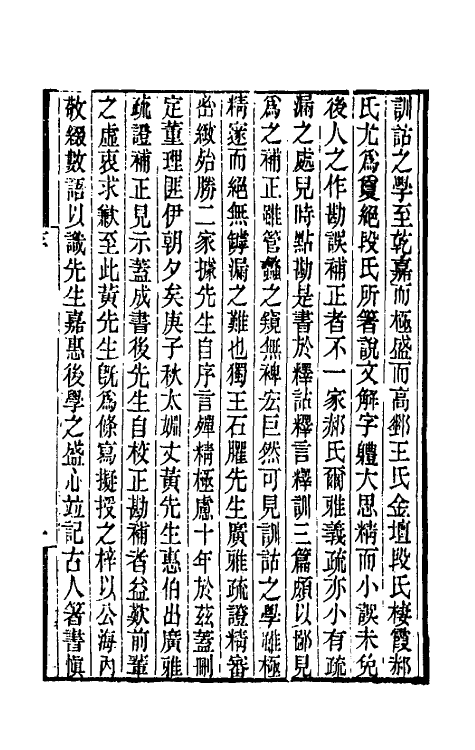 訓詁之學至乾嘉而極盛而高郵王氏金壇段氏棲霞郝
氏尤爲敻絕段氏所箸說文解字體大思精而小誤未免
後人之作勘誤補正者不一家郝氏爾雅義疏亦小有疏
漏之處兒時點勘是書於釋詁釋言釋訓三篇頗以鄙見
爲之補正雖管蠡之窺無裨宏巨然可見訓詁之學雖極
精邃而絕無罅漏之難也獨王石臞先生廣雅疏證精審
密緻始勝二家據先生自序言殫精極慮十年於茲蓋刪
定董理匪伊朝夕矣庚子秋太姻丈黃先生惠伯出廣雅
疏證補正見示蓋成書後先生自校正勘補者益歎前輩
之虛衷求歉至此黃先生旣爲條寫擬授之梓以公海內
敬綴數語以識先生嘉惠後學之盛心竝記古人箸書愼